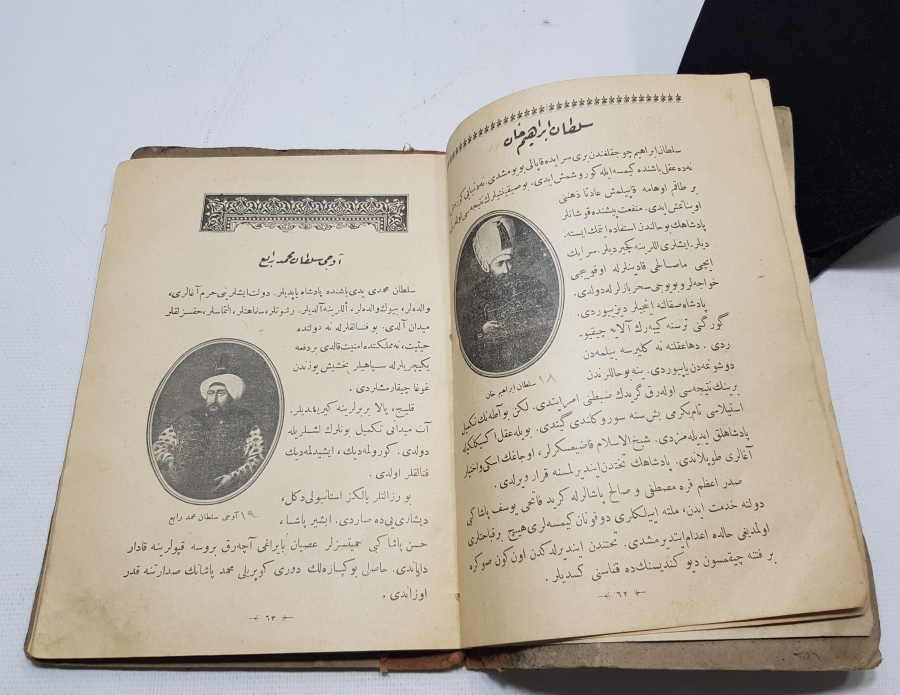 سلطان ابراهيم خان
سلطان ابراهيم چوجقلغندن برى سرايده قاپالى بويومشدى. نه دنيايى كورمش
نه ده عقلى باشنده كيمسه ايله كوروشمش ايدى. بو صيقينتيلرك نتيجه سى اوله رق
بر طاقم اوهامه قاپيلمش عادتا ذهنى
اويناتمش ايدى. منفعت پيشنده قوشانلر
پادشاهك بو حالندن استفاده ايتمك ايسته.
ديلر. ايشلرى اللرينه كچيرديلر. سرايك
ايچى ماصالجى قادينلرله اوفوجى
خواجه لر و بويوجى سحربازلرله دولدى.
پادشاه صقالنه اينجيلر ديزييوردى.
گورگنى ترسنه كيه رك آلايه چيقييو.
ردى. دها عقلنه نه كليرسه بيلمه دن
دوشونمه دن ياپيوردى. ينه بو حاللرندن
برينك نتيجه سى اوله رق گريدك ضبطنى امر ايتدى. لكن بو آطه نك تكميل
استيلاسى تام يكرمى بش سنه سوروكلندى گيتدى. بويله عقل اكسيكلكيله
پادشاهلق ايديله مزدى. شيخ الاسلام قاضيعسكرلر، اوجاغك اسكى و اختيار
آغالرى طوپلاندى. پادشاهك تختدن اينديرلمسنه قرار ويرلدى.
صدر اعظم قره مصطفى و صالح پاشالرله كريد فاتحى يوسف پاشا كبى
دولته خدمت ايدن، ملته اييلكلرى دوقونان كيمسه لرى هيچ بر قباحتلرى
اولمديغى حالده اعدام ايتديرمشدى. تختدن اينديرلدكدن اون كون صوكره
بر فتنه چيقمسون ديو كنديسنك ده قفاسنى كسديلر.
١٨ سلطان ابراهيم خان
٦٢
آوجى سلطان محمد رابع
سلطان محمدى يدى ياشنده پادشاه ياپديلر. دولت ايشلرينى حرم آغالرى،
والده لر، بيوك والده لر، اللرينه آلديلر. رشوتلر، سفاهتلر، التماسلر، حقسزلقلر
ميدان آلدى. بو فنالقلرله نه دولتده
حيثيت، نه مملكتده امنيت قالدى بر دفعه
يكيچريلر له سپاهيلر بخشيش يوزندن
غوغا چيقارمشلردى.
قليچ، پالا بربرلرينه كيريديلر.
آت ميدانى تكميل بونلرك لشلريله
دولدى. كورولمه ديك، ايشيدلمه ديك
فنالقلر اولدى.
بو رزالتلر يالكز استانبولى دكل،
ديشارى يى ده صاردى. ابشير پاشا،
حسن پاشا كبى حميتسزلر عصيان بايراغى آچه رق بروسه قپولرينه قادار
داياندى. حاصلى بو كپازه لك دورى كوپريلى محمد پاشانك صدارتنه قدر
اوزاندى.
١٩ آوجى سلطان محمد رابع
٦٣